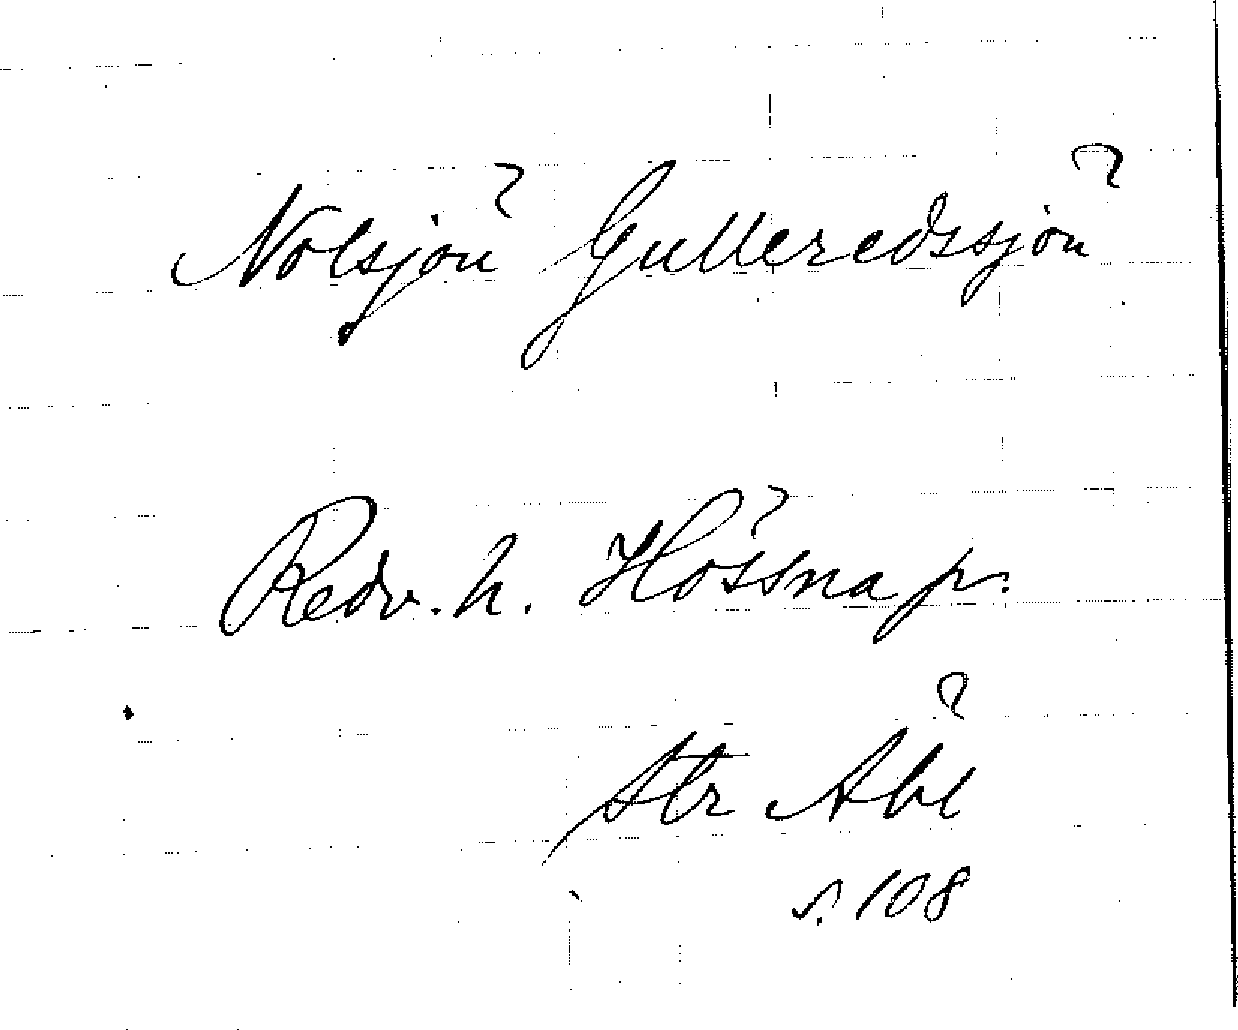 Nolsjön Gulleredssjön
Redv. h. Hössna pr.
Str
s. 108